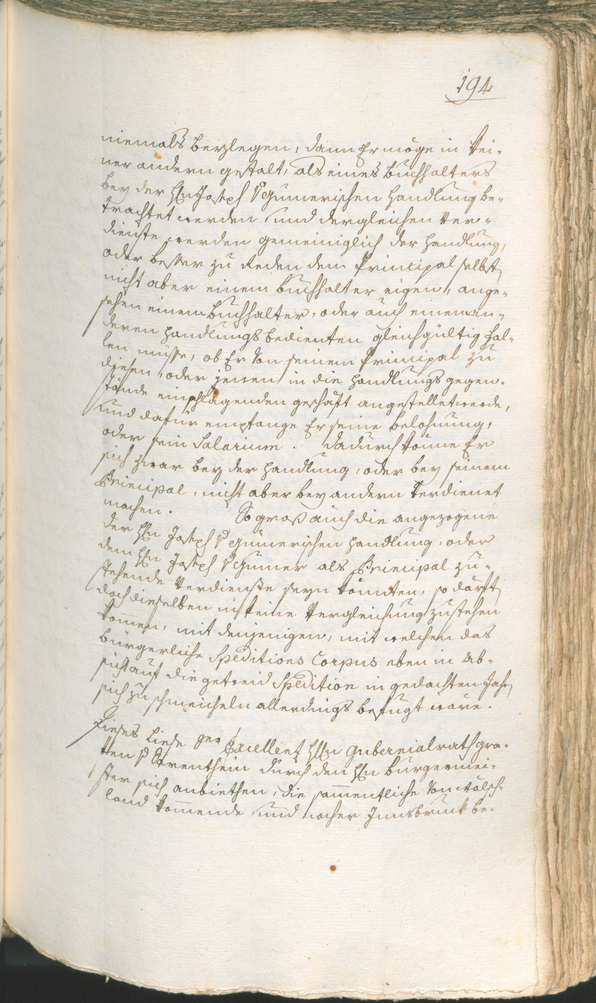 194
niemals beylegen, dann Er möge in kei-
ner andern gestalt, als eines Buchhalters
bey der Hℓn Joseph Gumerischen Handlung be-
trachtet werden und dergleichen Ver-
dienste werden gemeiniglich der Handlung,
oder besser zu reden dem Principal selbst
nicht aber einem Buchhalter eigen, ange-
sehen einem Buchhalter, oder auch einem an-
deren Handlungsbedienten gleichgültig fal-
len müsse, ob Er von seinem Principal zu
diesen, oder jenen in die Handlungs gegen-
stände einschlagenden geschäft angestellet werde,
und dafür empfange Er seine belohnung,
oder sein Salarium. Dadurch könne Er
sich zwar bey der Handlung, oder bey seinem
Principal, nicht aber bey andern Verdienet
machen. So groß auch die angezogene
der Hℓn Joseph Gumerischen Handlung, oder
dem Hℓn Joseph Gumer als Principal zu-
stehende Verdienste seyn könnten, so därfte
doch dieselben in keine Vergleichung zustehen
komen, mit denjenigen, mit welchen das
bürgerliche Speditions Corpus eben in Ab-
sicht auf die getreid Spedition in gedachten Jahr
sich zu schmeicheln allerdings befugt wäre.
Dieses ließe Sr Excellenz Hℓn Gubernialrath gra-
fen v Trentheim durch den Hℓn Burgermei-
ster sich anbiethen, die sammentliche von wälsch-
land kommende und nacher Innsbruck be-